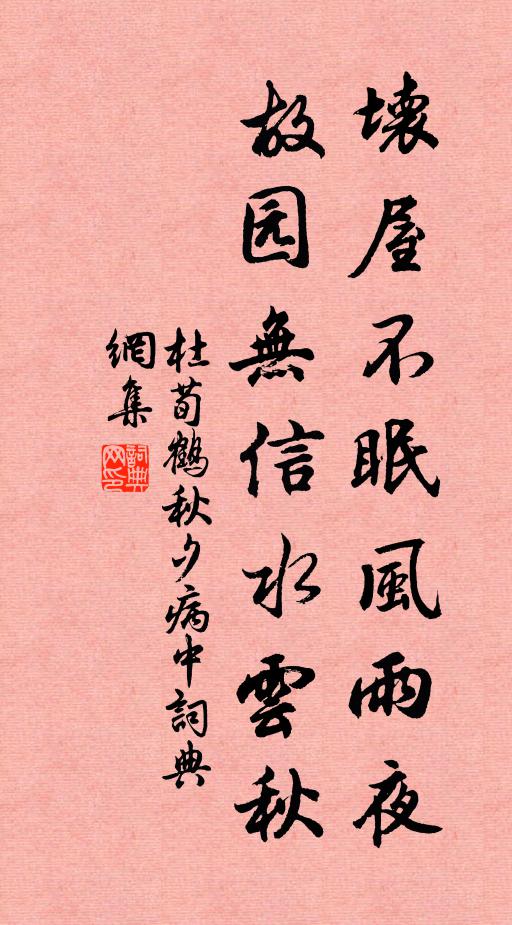 壊屋不眠風雨夜
故园無信水雲秋
杜荀鶴秋夕病中詞典
網集
詞典
网印